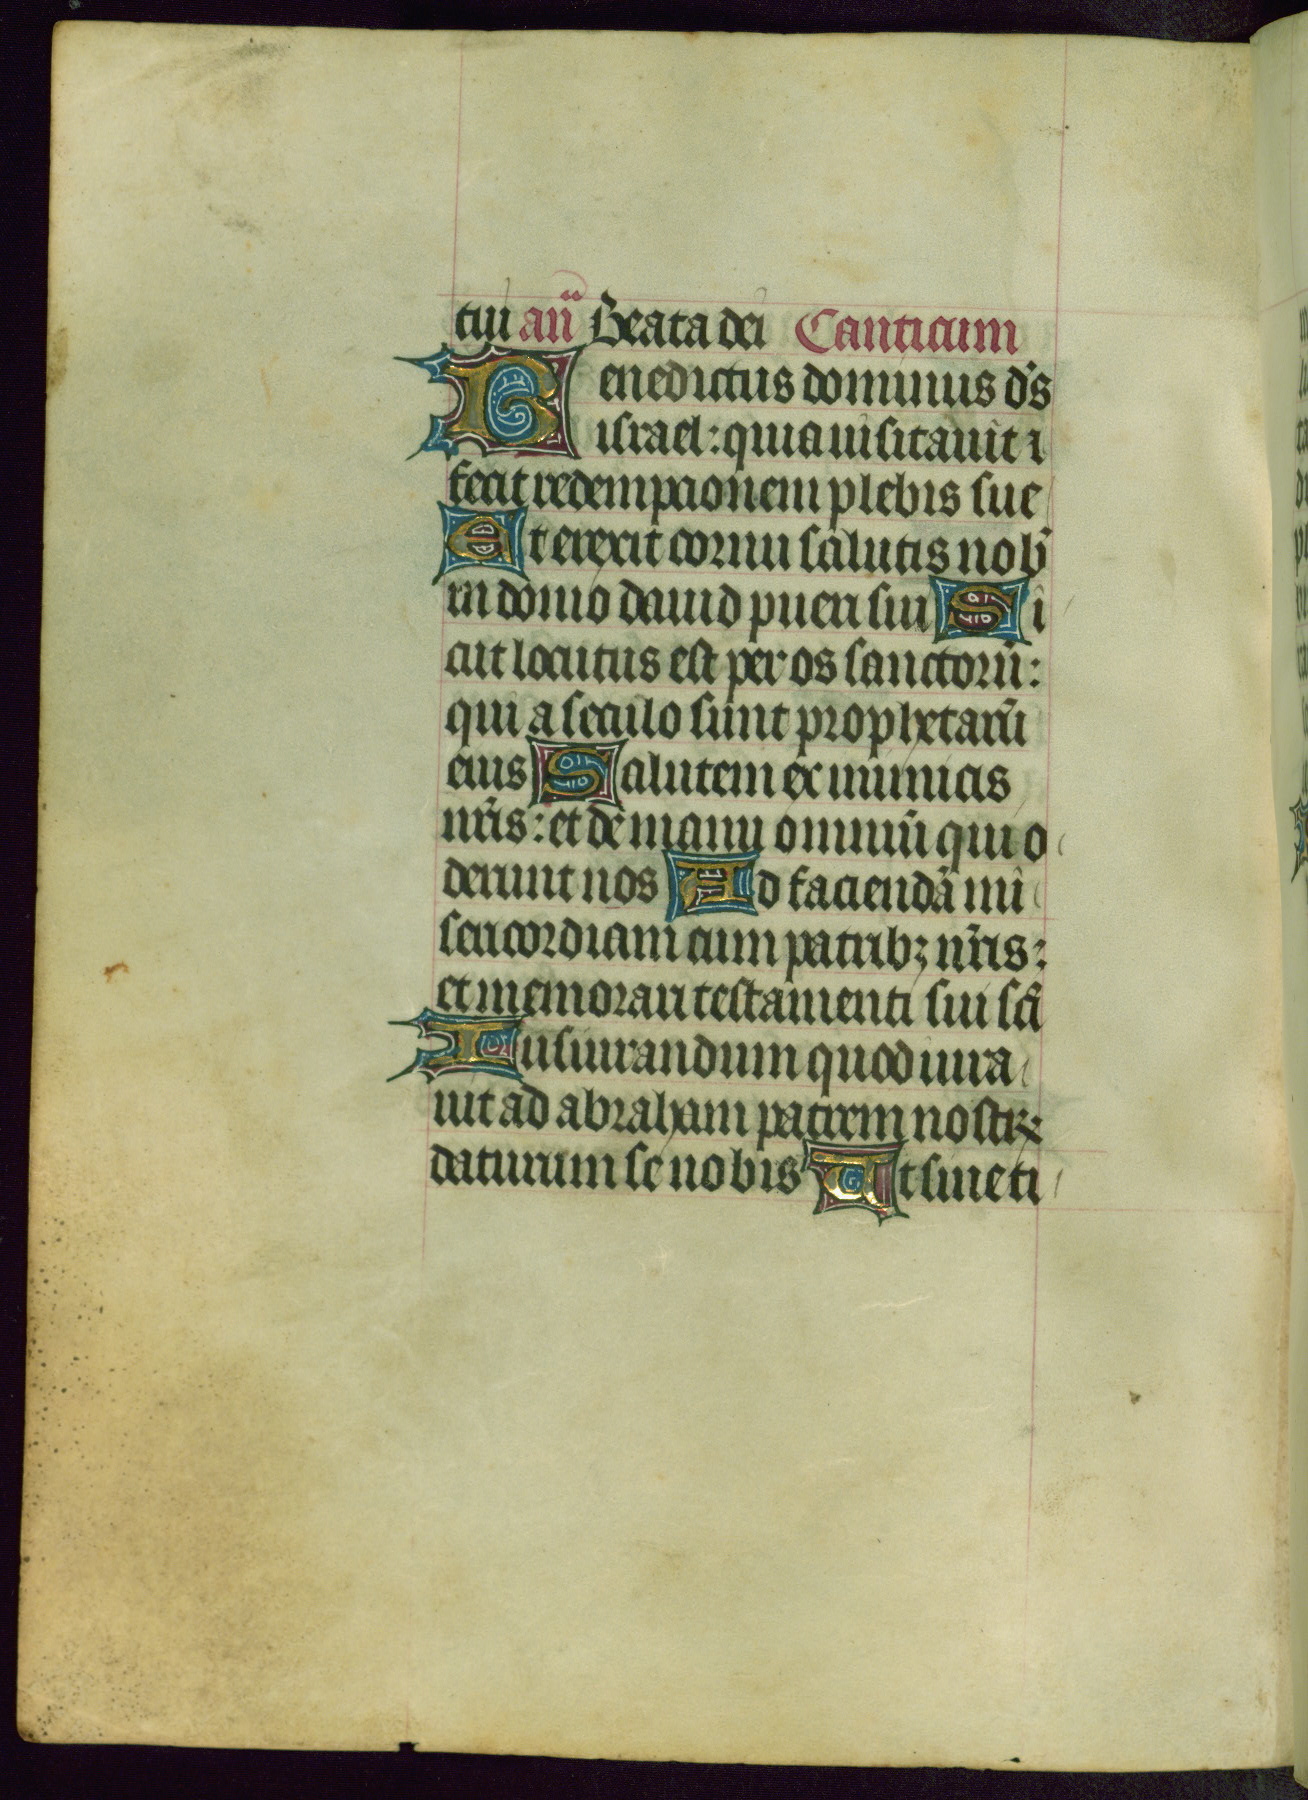 tui an̄ Beata dei Canticum
Benedictus dominus ds̄
israel: quia uisitauit ⁊
fecit redempcionem plebis sue
Et erexit cornu salutis nob̄
in domo dauid pueri sui Si
cut locutus est per os sanctorū:
qui a seculo sunt prophetarū
eius Salutem ex inimicis
nr̄is: et de manu omniū qui o
derunt nos Ad faciendā mi
sericordiam cum patribꝫ nr̄is:
et memorari testamenti sui sc̄i
Iusiurandum quod iura
uit ad abraham patrem nostrꝝ
daturum se nobis Ut sine ti